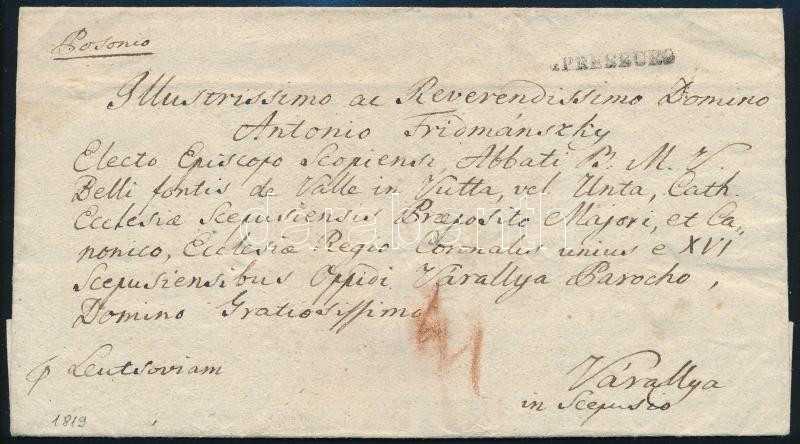 Posonio
PRESBURG
Illustrissimo ac Reverendissimo Domino
Antonio Fridmánszky
Electo Episcopo Scopiensi, Abbati B. M. V.
Belli fontis de Valle in Jutta, vel Unta, Cath.
Ecclesiæ Scepusiensis Præposito Majori, et Ca„
nonico, Ecclesiæ Regio Coronalis unius e XVI
Scepusiensibus Oppidi Várallya Parocho,
Domino Gratiosissimo
Leutsoviam
Várallya
in Scepusio
1819